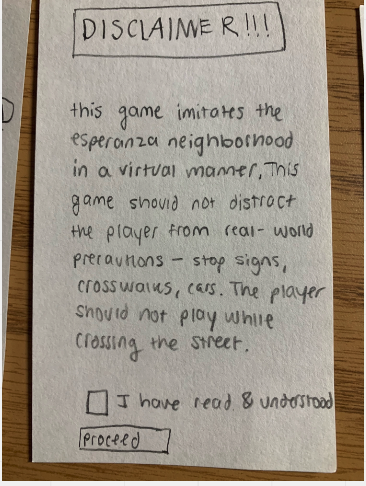 DISCLAIMER!!!
this game imitates the
esperanza neighborhood
in a virtual manner, This
game should not distract
the player from real-world
precautions - stop signs,
crosswalks, cars. The player
should not play while
crossing the street.
I have read & understood
proceed